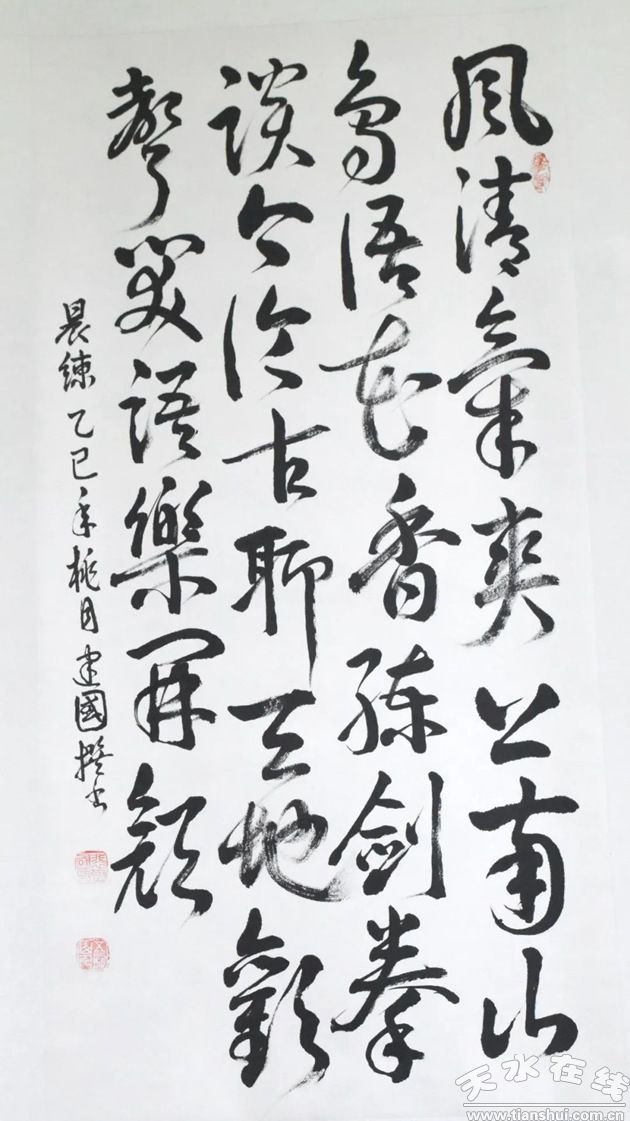 风清氣爽上南山
鸟语花香练剑拳
谈今论古聊天地歡
聲笑語樂開顔
晨練 乙巳年桃月 建國撰书
天水在线
www.tianshui.com.cn